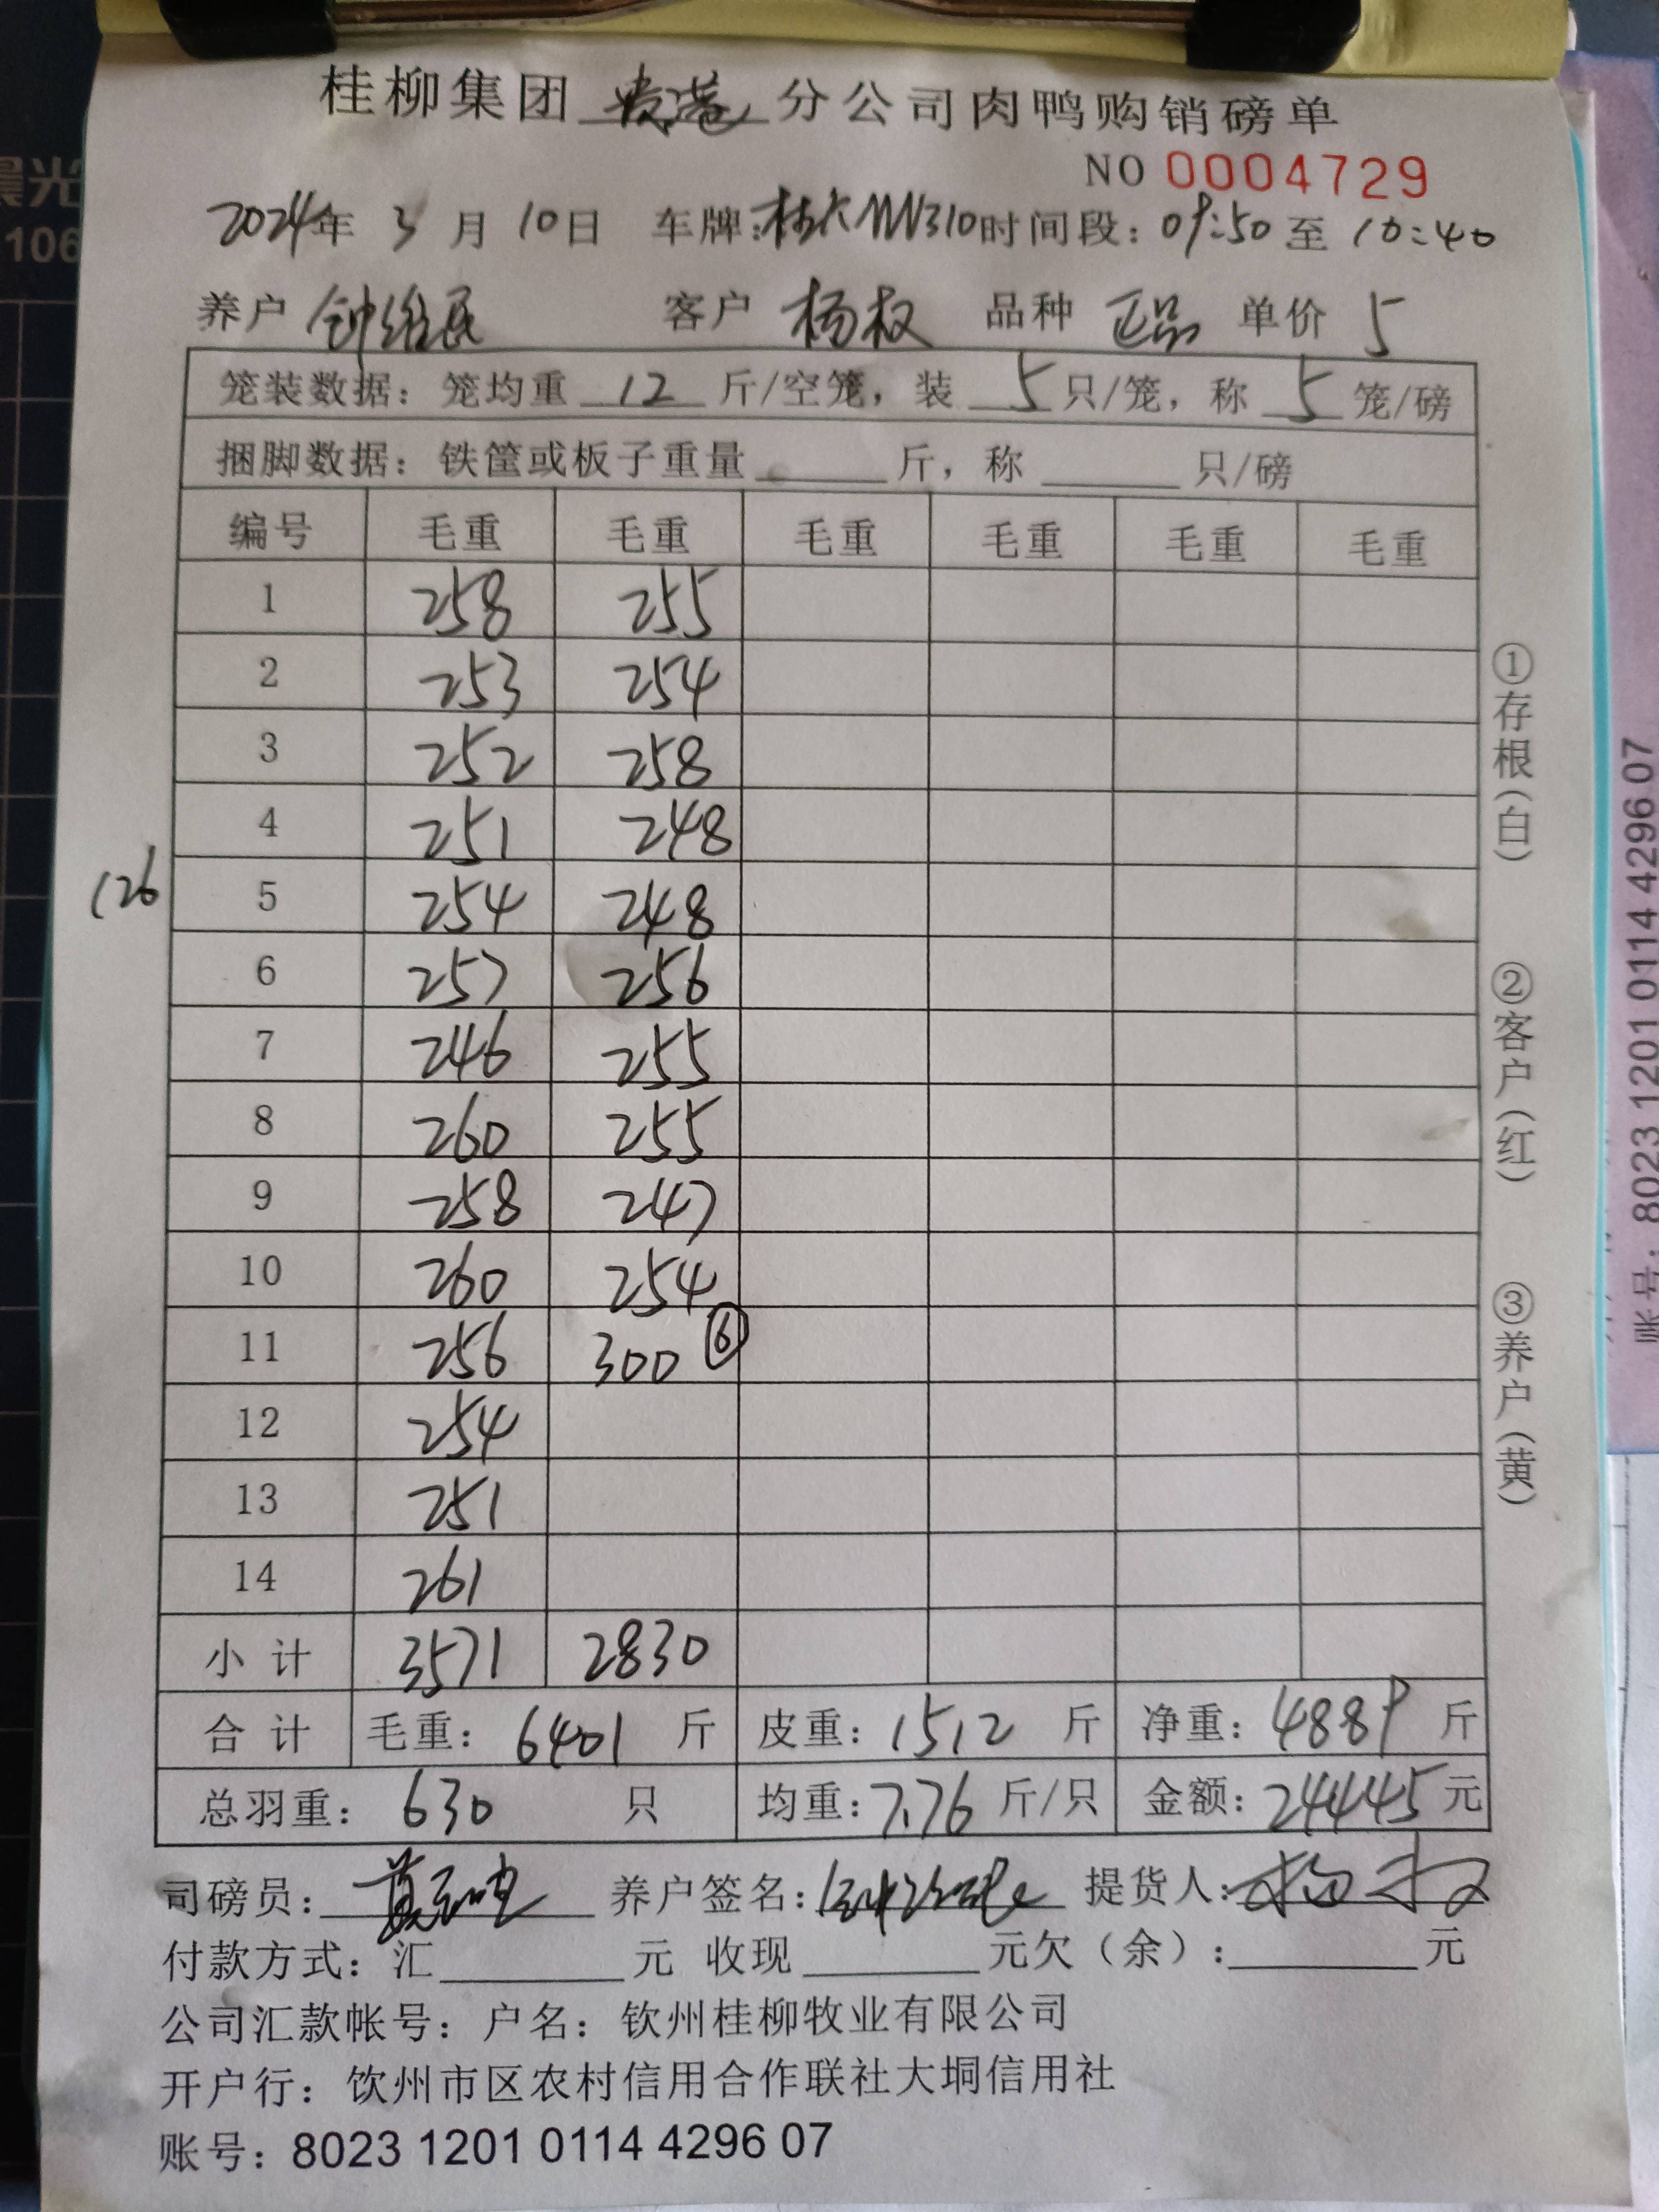 桂柳集团 贵港 分公司肉鸭购销磅单
NO 0004729
2024年 3 月 10日 车牌: 时间段: 09:50 至 10:40
养户 钟维民 客户 杨权 品种 正品 单价 5
笼装数据: 笼均重 12 斤/空笼, 装 5 只/笼, 称 5 笼/磅
捆脚数据: 铁筐或板子重量 斤, 称 只/磅
编号 毛重 毛重 毛重 毛重 毛重 毛重
1 258 255
2 253 254
3 252 258
4 251 248
126 5 254 248
6 257 256
7 246 255
8 260 255
9 258 247
10 260 254
11 256 300 ⑥
12 254
13 251
14 261
小计 3571 2830
合计 毛重: 6401 斤 皮重: 1512 斤 净重: 4889 斤
总羽重: 630 只 均重: 7.76 斤/只 金额: 24445 元
司磅员: 养户签名: 提货人: 杨权
付款方式: 汇 元 收现 元欠（余）: 元
公司汇款帐号: 户名: 钦州桂柳牧业有限公司
开户行: 钦州市区农村信用合作联社大垌信用社
账号: 8023 1201 0114 4296 07
①存根（白）
②客户（红）
③养户（黄）
账号: 8023 1201 0114 4296 07
晨光
106